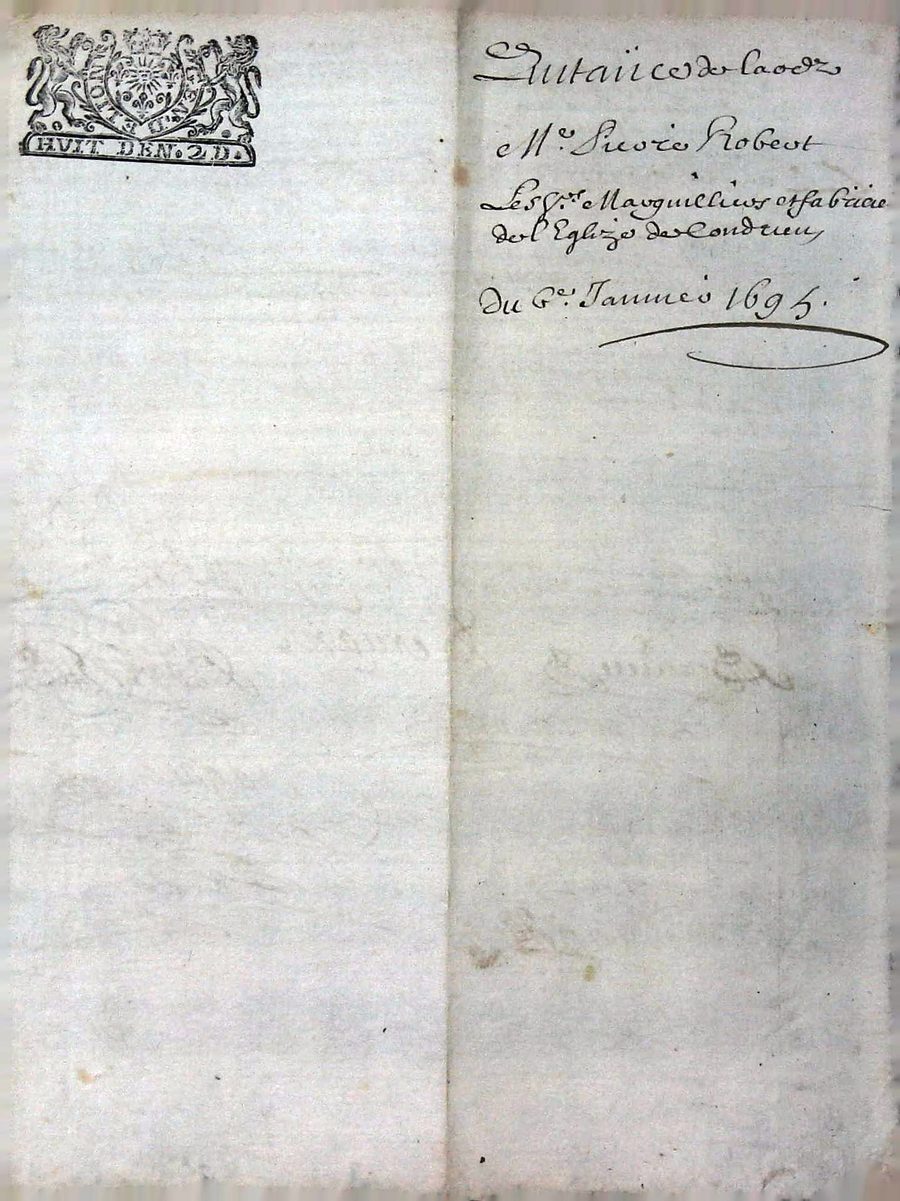 G. DE LYON
HVIT DEN. 2 D.
Quitaüce de laods
Mre. Pierre Robert
Les Srs. Marguilliers et fabricie
de l'Eglize de Condrieu
Du 6e. Januier 1695.